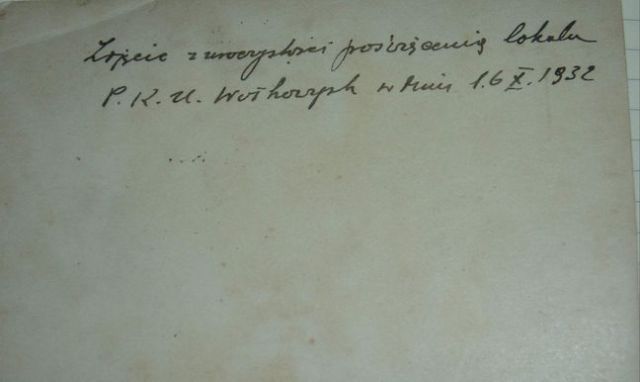 Zdjęcie z uroczystości poświęcenia lokalu
P. K. U. Wołkowysk w dniu 1.6 X. 1932